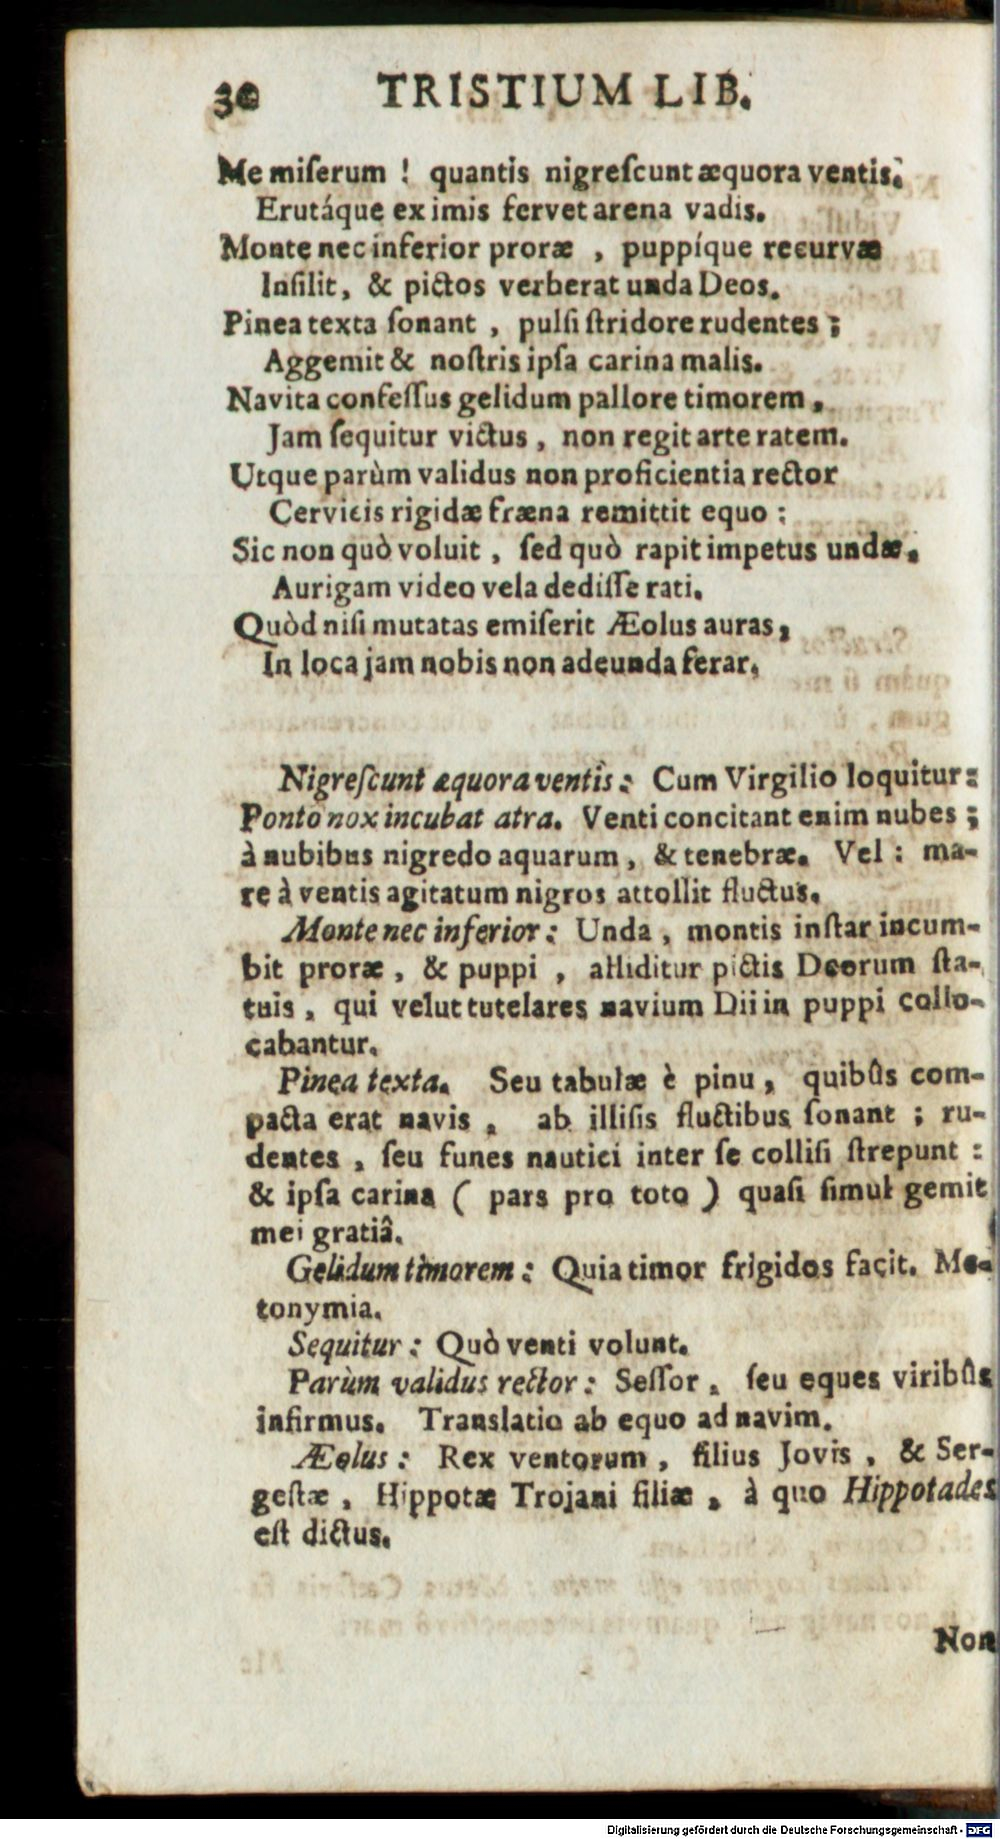 30 TRISTIUM LIB.
Me miſerum ! quantis nigreſcunt æquora ventis.
Erutáque ex imis fervet arena vadis.
Monte nec inferior proræ , puppíque recurvæ
Inſilit, & pictos verberat unda Deos.
Pinea texta ſonant , pulſi ſtridore rudentes ;
Aggemit & noſtris ipſa carina malis.
Navita confeſſus gelidum pallore timorem ,
Jam ſequitur victus , non regit arte ratem.
Utque parùm validus non proficientia rector
Cervicis rigidæ fræna remittit equo ;
Sic non quò voluit , ſed quò rapit impetus undæ,
Aurigam video vela dediſſe rati.
Quòd niſi mutatas emiſerit Æolus auras,
In loca jam nobis non adeunda ferar.
Nigreſcunt æquora ventis : Cum Virgilio loquitur :
Ponto nox incubat atra. Venti concitant enim nubes ;
à nubibus nigredo aquarum , & tenebræ. Vel : ma-
re à ventis agitatum nigros attollit fluctus.
Monte nec inferior : Unda , montis inſtar incum-
bit proræ , & puppi , alliditur pictis Deorum ſta-
tuis , qui velut tutelares navium Dii in puppi collo-
cabantur.
Pinea texta. Seu tabulæ è pinu , quibûs com-
pacta erat navis , ab illiſis fluctibus ſonant ; ru-
dentes , ſeu funes nautici inter ſe colliſi ſtrepunt :
& ipſa carina ( pars pro toto ) quaſi ſimul gemit
mei gratiâ.
Gelidum timorem : Quia timor frigidos facit. Me-
tonymia.
Sequitur : Quò venti volunt.
Parùm validus rector : Seſſor , ſeu eques viribûs
infirmus. Translatio ab equo ad navim.
Æolus : Rex ventorum , filius Jovis , & Ser-
geſtæ , Hippotæ Trojani filiæ , à quo Hippotades
eſt dictus.
Non
Digitalisierung gefördert durch die Deutsche Forschungsgemeinschaft - DFG